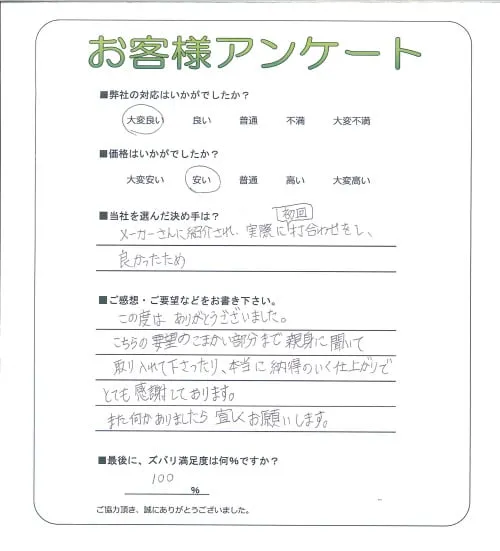 お客様アンケート
■弊社の対応はいかがでしたか？
大変良い 良い 普通 不満 大変不満
■価格はいかがでしたか？
大変安い 安い 普通 高い 大変高い
■当社を選んだ決め手は？
初回
メーカーさんに紹介され、実際に打合わせをし、
良かったため
■ご感想・ご要望などをお書き下さい。
この度は ありがとうございました。
こちらの要望のこまかい部分まで親身に聞いて
取り入れて下さったり、本当に納得のいく仕上がりで
とても感謝しております。
また何かありましたら宜しくお願いします。
■最後に、ズバリ満足度は何%ですか？
100
%
ご協力頂き、誠にありがとうございました。